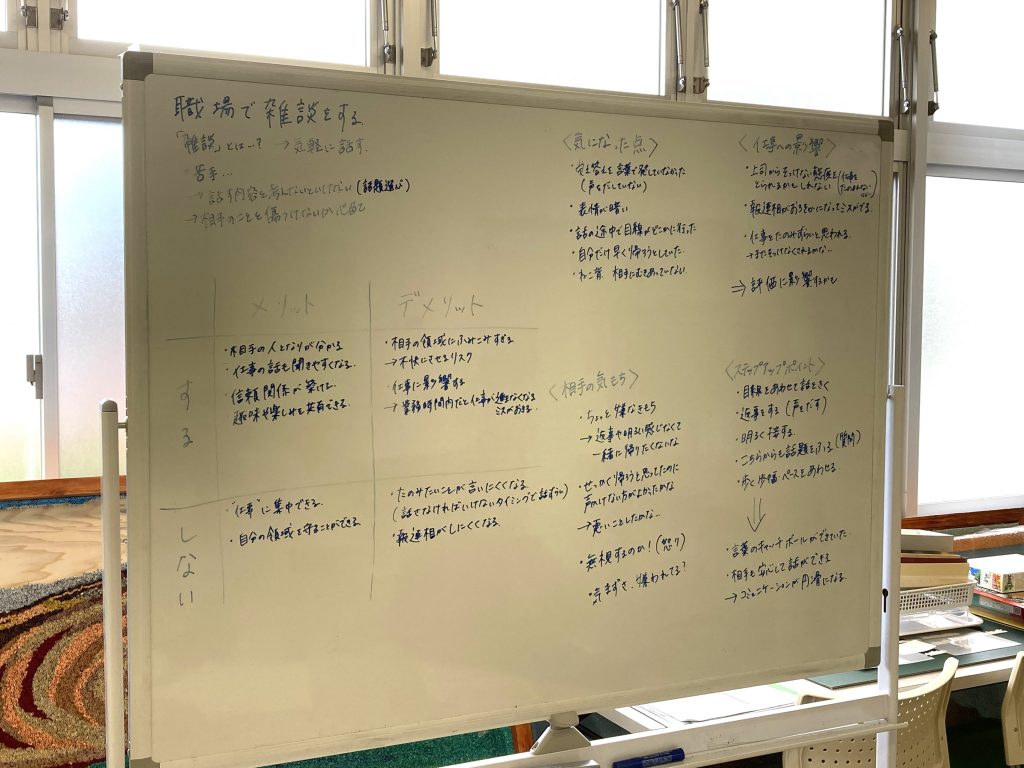 職場で雑談をする
「雑談」とは…? →気軽に話す.
・苦手…
→話す内容を考えないといけない(話題選び)
→相手のことを傷つけないか心配で
メリット
デメリット
する
・相手の人となりが分かる
・仕事の話も聞きやすくなる.
・信頼関係が築ける.
趣味や楽しみを共有できる.
・相手の領域にふみこみすぎる
→不快にさせるリスク
・仕事に影響する
→業務時間内だと仕事が進まなくなる
ミスがおきる.
しない
・"仕事"に集中できる.
・自分の領域を守ることができる.
・たのみたいことが言いにくくなる
(話さなければいけないタイミングで話すらい)
・報連相がしにくくなる.
〈気になった点〉
・受け答えを言葉で発していなかった
(声をだしていない)
・表情が暗い
・話の途中で目線がどこかに行った
・自分だけ早く帰ろうとしていた.
・ねこ背. 相手にむきあっていない.
〈相手の気もち〉
・ちょっと嫌なきもち
→返事や明るい感じなくて
一緒に帰りたくないな
・せっかく帰ろうと思ってたのに
声かけない方がよかったかな
→悪いことしたかな..
・無視するのか!(怒り)
・気まずさ. 嫌われてる?
〈仕事への影響〉
・上司からそっけない態度を
とられるかもしれない
(仕事をたのまれない)
・報連相がおろそかになってミスがでる.
・仕事をたのみずらいと思われる.
→まだそっけなくされるかな..
⇒評価に影響するかも
〈ステップアップポイント〉
・目線をあわせて話をきく
・返事をする(声をだす)
・明るく接する.
・こちらからも話題をふる.(質問)
・歩く歩幅・ペースをあわせる.
⇓
・言葉のキャッチボールができていた.
・相手も安心して話ができる
→コミュニケーションが円滑になる.